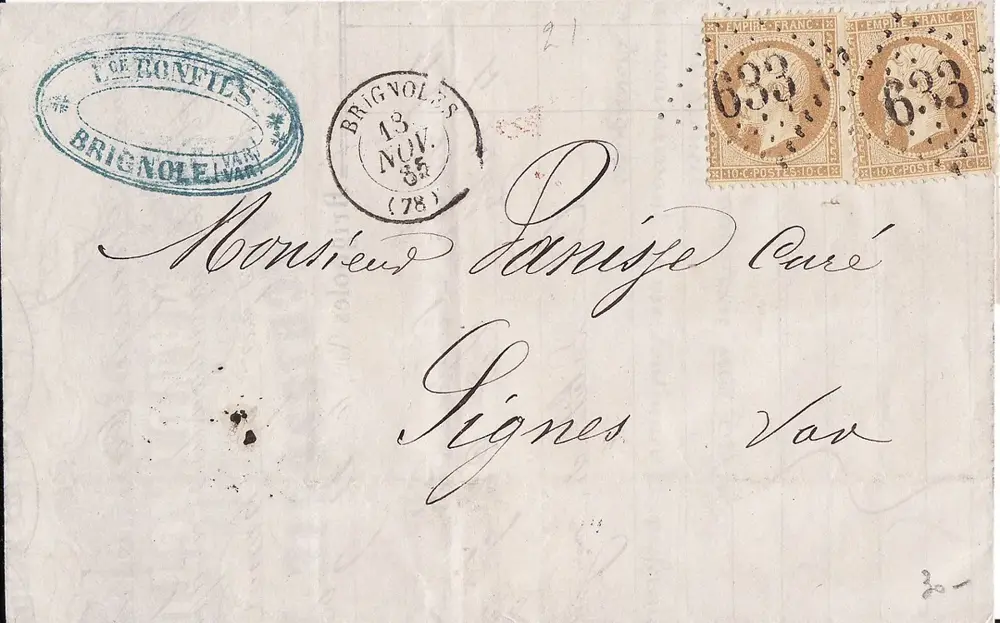 BONFILS
BRIGNOLE (VAR)
BRIGNOLES
18
NOV.
65
(78)
21
EMPIRE FRANC
633
10 C POSTES 10 C
EMPIRE FRANC
633
10 C POSTES 10 C
Monsieur Panisse Curé
Signes Var
30-